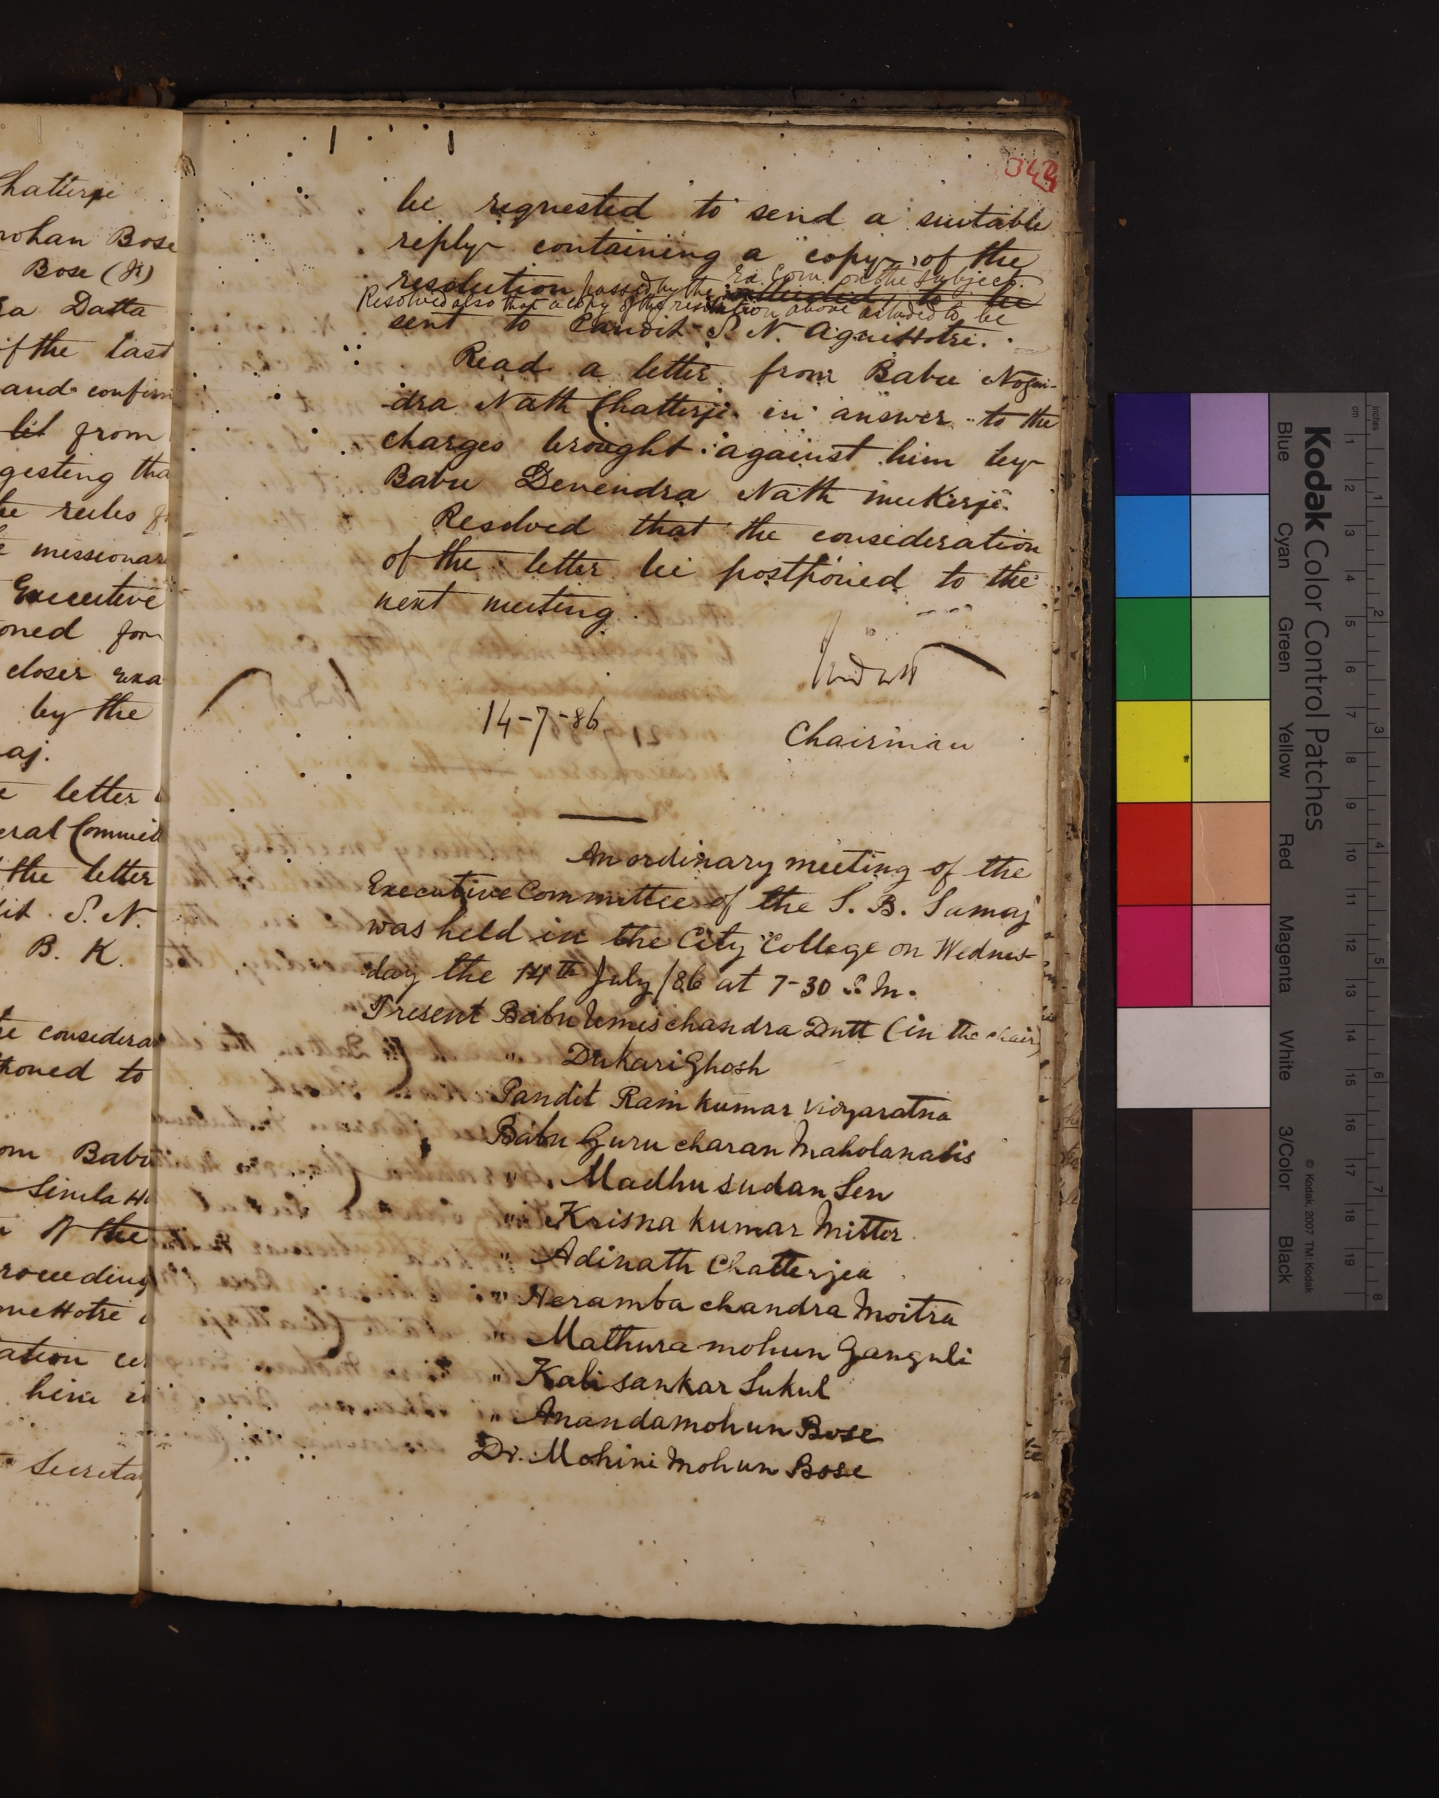 hatterje
mohan Bose
Bose (Jr)
ra Datta
of the last
and confirm
lit from
gesting tha
he rules f
e missionar
Executive
oned for
closer exa
by the
aj.
e letter
eral Commit
the letter
dit S. N.
B. K.
re considera
poned to
om Babu
Simla
of the
roceeding
ation
him i
Secretar
be requested to send a suitable
reply containing a copy of the
resolution passed by the Ex. Com. on the subject.
Resolved also that a copy of the resolution above alluded to be
sent to Pandit S. N. Agnihotri.
Read a letter from Babu Nogen-
dra Nath Chatterje in answer to the
charges brought against him by
Babu Devendra Nath Mukerje.
Resolved that the consideration
of the letter be postponed to the
next meeting.
14-7-86
Chairman
An ordinary meeting of the
Executive Committee of the S. B. Samaj
was held in the City College on Wednes-
day the 14th July/86 at 7-30 P.M.
Present Babu Umeschandra Dutt (in the chair)
" Dukari Ghosh
Pandit Ram kumar Vidyaratna
Babu Guru charan Maholanabis
" Madhu sudan Sen
" Krisna kumar Mitter
" Adinath Chatterjea
" Heramba chandra Moitra
" Mathura mohun Ganguli
" Kali sankar Sukul
" Anandamohun Bose
Dr. Mohini Mohun Bose
Kodak Color Control Patches
Blue
Cyan
Green
Yellow
Red
Magenta
White
3/Color
Black
© Kodak, 2007 TM: Kodak
cm 1 2 3 4 5 6 7 8 9 10 11 12 13 14 15 16 17 18 19
inches 1 2 3 4 5 6 7 8